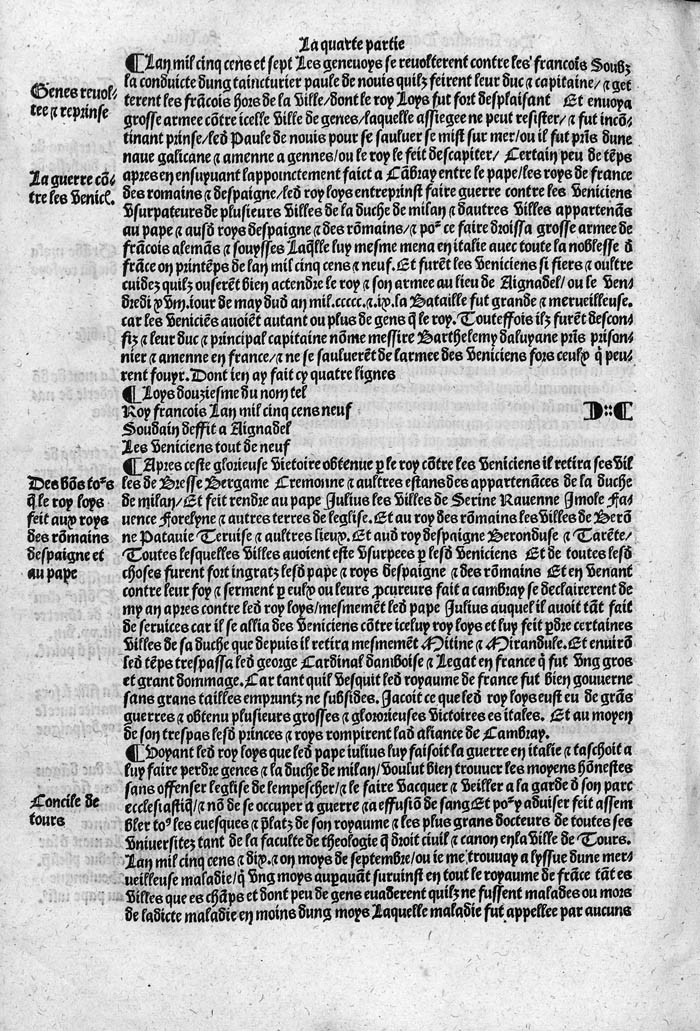 La quarte partie
¶ Lan mil cinq cens et sept Les genevoys se revolterent contre les francois Soubz
la conduicte dung taincturier paule de nouis quilz feirent leur duc ⁊ capitaine/ ⁊ get
terent les frãcois hors de la ville/ dont le roy Loys fut fort desplaisant Et envoya
grosse armee cõtre icelle ville de genes/ laquelle assiegee ne peut resister/ ⁊ fut incõ-
tinant prinse/ led Paule de nouis pour se sauluer se mist sur mer/ ou il fut pris dune
naue galicane ⁊ amenne a gennes/ ou le roy le feit descapiter/ Certain peu de tẽps
apres en ensuyuant lappoinctement faict a Cãbray entre le pape/ les roys de france
des romains ⁊ despaigne/ led roy loys entreprinst faire guerre contre les Veniciens
Vsurpateurs de plusieurs villes de la duche de milan ⁊ dautres villes appartenãs
au pape ⁊ ausd roys despaigne ⁊ des rõmains/ ⁊ poꝰ ce faire droissa grosse armee de
frãcois alemãs ⁊ souysses Laq̃lle luy mesme mena en italie avec toute la noblesse d̃
frãce on printẽps de lan mil cinq cens ⁊ neuf. Et furẽt les Veniciens si fiers ⁊ oultre
cuidez quilz ouserẽt bien actendre le roy ⁊ son armee au lieu de Aignadel/ ou le ven-
dredi xviii. iour de may dud an mil.ccccc.⁊.ix. la Bataille fut grande ⁊ merueilleuse.
car les Veniciẽs auoiẽt autant ou plus de gens q̃ le roy. Touteffois ilz furẽt descon-
fiz ⁊ leur duc ⁊ principal capitaine nõme messire Barthelemy daluyane pris prison-
nier ⁊ amenne en france/ ⁊ ne se saulueret de larmee des Veniciens fors ceulx q̃ peu-
rent fouyr. Dont ien ay fait cy quatre lignes
¶ Loys douziesme du nom tel
Roy francois Lan mil cinq cens neuf
Soudain deffit a Aignadel
Les Veniciens tout de neuf
¶ Apres ceste glorieuse Victoire obtenue p̱ le roy cõtre les Veniciens il retira ses vil
les de Bresse Bergame Cremonne ⁊ aultres estans des appartenãces de la duche
de milan/ Et feit rendre au pape Julius les villes de Serine Rauenne Imole Fa-
uence Forelyne ⁊ autres terres de leglise. Et au roy des rõmains les villes de Berõ
ne Patauie Teruise ⁊ aultres lieux. Et aud roy despaigne Beronduse ⁊ Tarẽte/
Toutes lesquelles villes auoient este Vsurpees p̱ lesd Veniciens Et de toutes lesd
choses furent fort ingratz lesd pape ⁊ roys despaigne ⁊ des rõmains Et en venant
contre leur foy ⁊ serment p̱ eulx ou leurs p̱cureurs fait a cambray se declairerent de
my an apres contre led roy loys/ mesmemẽt led pape Julius auquel il auoit tãt fait
de services car il se allia des Veniciens cõtre iceluy roy loys et luy feit p̱dre certaines
villes de sa duche que depuis il retira mesmemẽt Mitine ⁊ Mirandule. Et enuirõ
led tẽps trespassa led george Cardinal damboise ⁊ Legat en france q̃ fut vng gros
et grant dommage. Car tant quil vesquit led royaume de france fut bien gouuerne
sans grans tailles empruntz ne subsides. Jacoit ce que led roy loys eust eu de grãs
guerres ⁊ obtenu plusieurs grosses ⁊ glororieuses victoires es itales. Et au moyen
de son trespas lesd princes ⁊ roys rompirent lad aliance de Cambray.
¶ Voyant led roy loys que led pape iulius luy faisoit la guerre en italie ⁊ taschoit a
luy faire perdre genes ⁊ la duche de milan/ voulut bien trouucr les moyens hõnestes
sans offenser leglise de lempescher/ ⁊ le faire Vacquer ⁊ Veiller a la garde d̃ son parc
ecclesiastiq̃/ ⁊ nõ de se occuper a guerre ⁊ a effusiõ de sang Et poꝰ y aduiser feit assem
bler toꝰ les euesques ⁊ p̃latz de son royaume ⁊ les plus grans docteurs de toutes ses
Vniuersitez tant de la faculte de theologie q̃ droit ciuil ⁊ canon en la ville de Tours.
Lan mil cinq cens ⁊ dix. ⁊ on moys de septembre/ ou ie me trouuay a lyssue dune mer-
ueilleuse maladie/ q̃ vng moys aup̱auãt suruinst en tout le royaume de frãce tãt es
villes que es chãps et dont peu de gens euaderent quilz ne fussent malades ou mors
de ladicte maladie en moins dung moys Laquelle maladie fut appellee par aucuns
Genes reuol-
tee ⁊ reprinse
La guerre cõ-
tre les Venici.
D::C
Des bõs toꝰs
q̃ le roy loys
feit aux roys
des rõmains
despaigne et
au pape
Concile de
tours